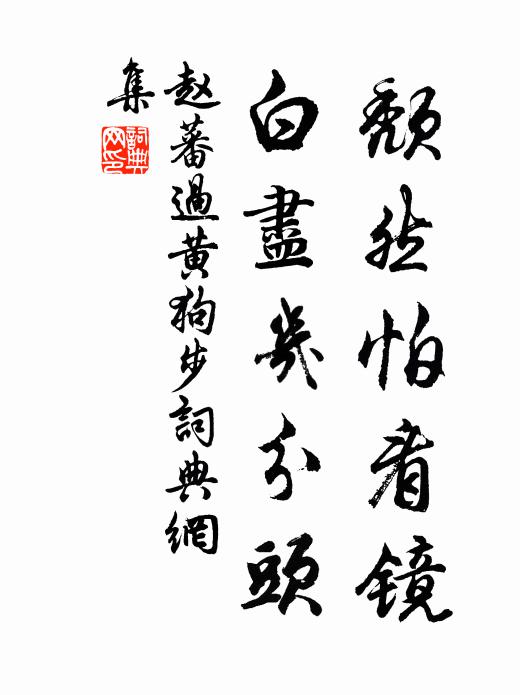 颓然怕看镜
白盡幾分頭
赵蕃過黄狗步詞典網
集
詞典网印